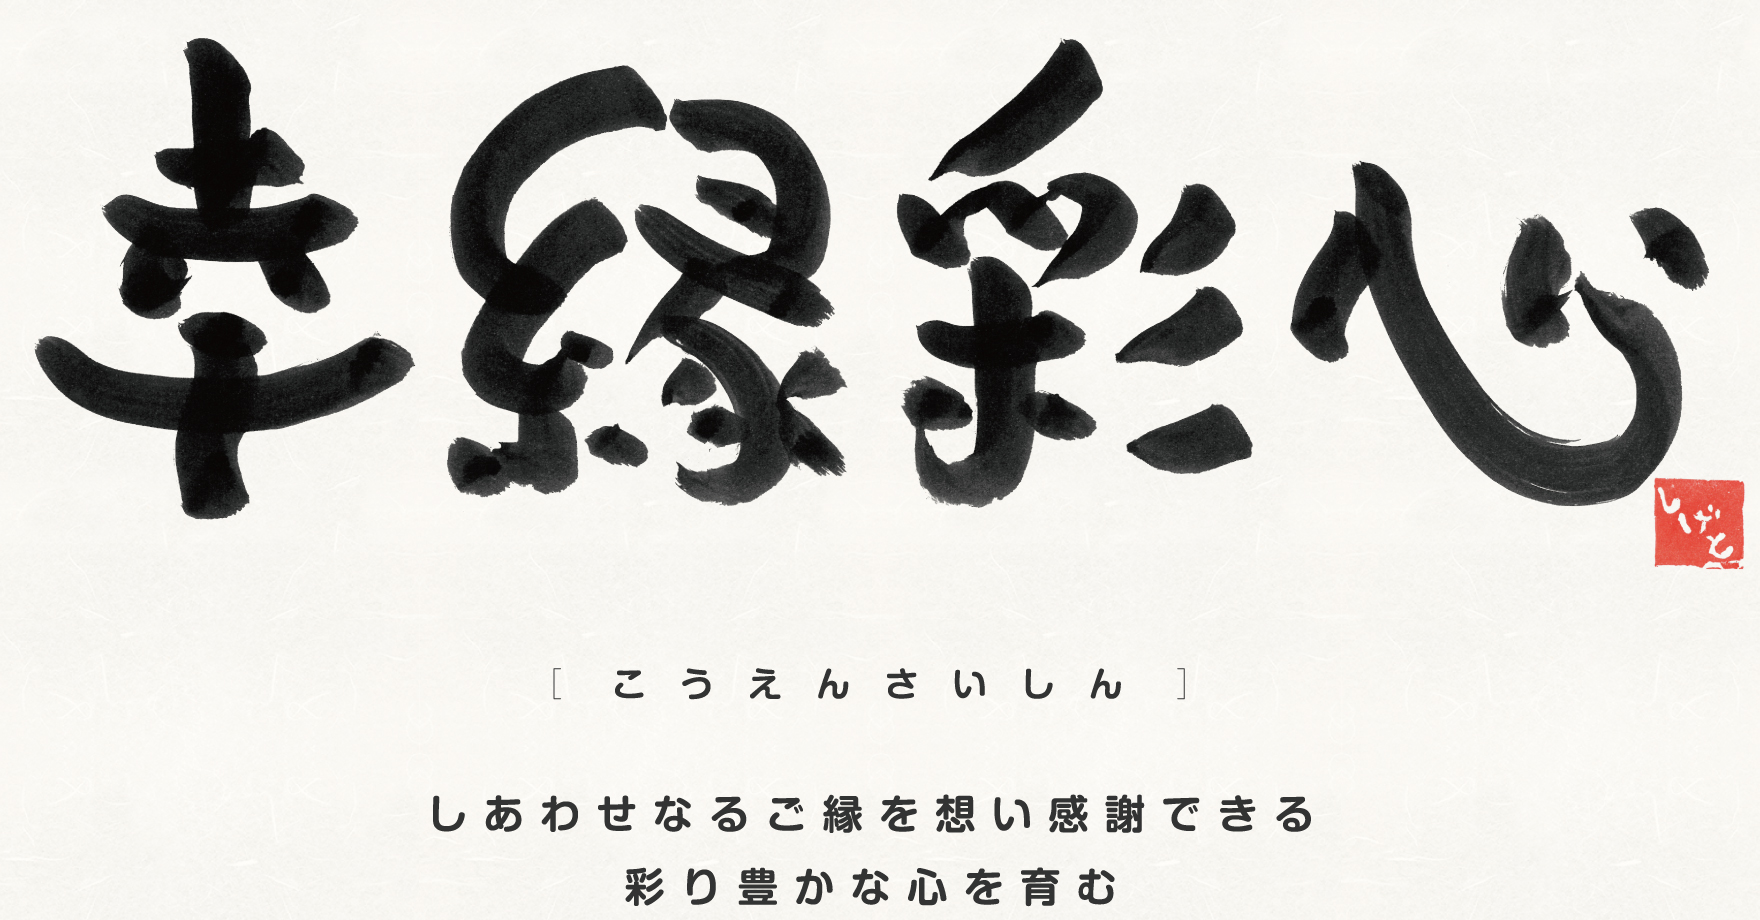 幸縁彩心
しげと
[ こうえんさいしん ]
しあわせなるご縁を想い感謝できる
彩り豊かな心を育む